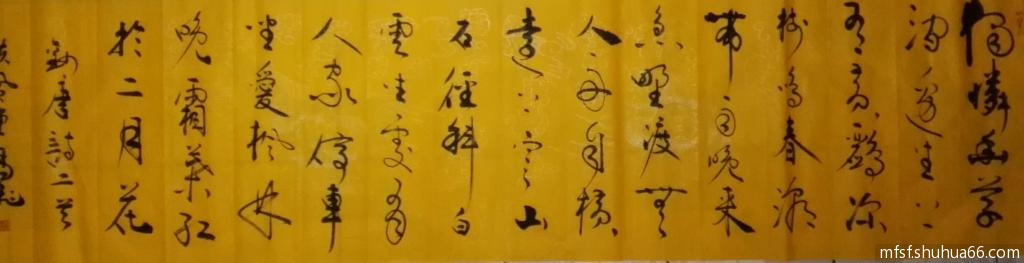 獨憐幽草
澗邊生上
有黄鸝深
樹鳴春潮
帶雨晚来
急野渡無
人舟自横
遠上寒山
石徑斜白
雲生處有
人家停車
坐愛楓林
晚霜葉红
於二月花
録唐詩二首
mfsf.shuhua66.com